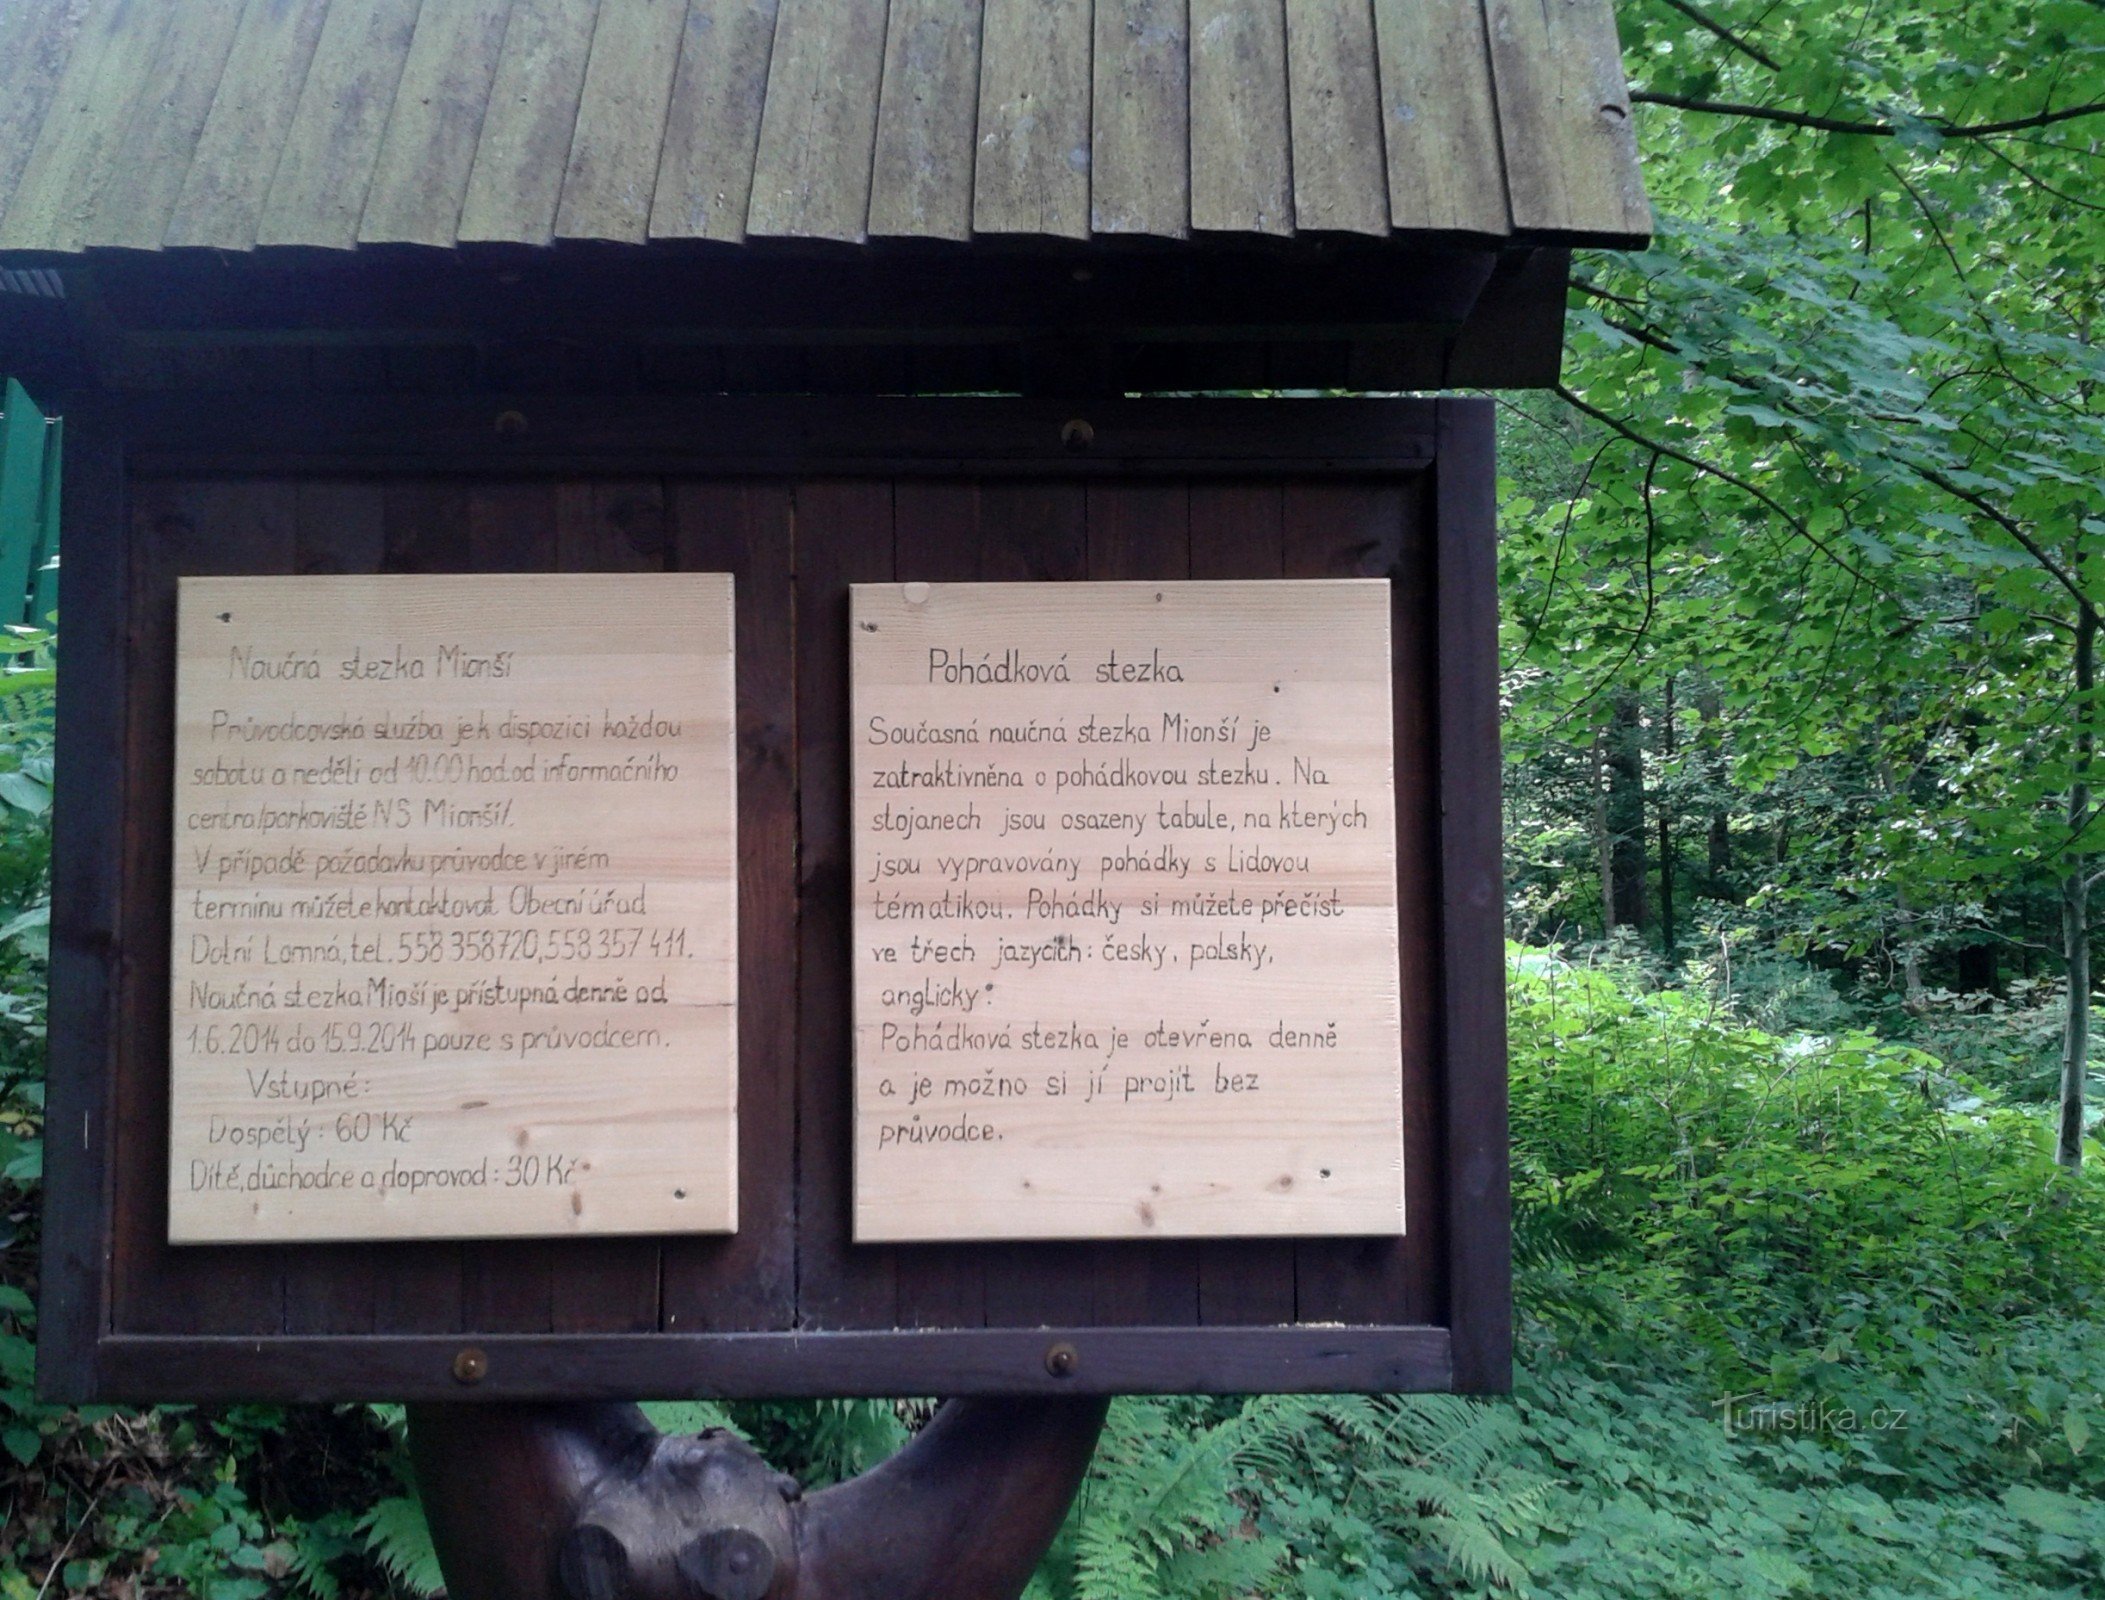 Naučná stezka Mionší
Průvodcovská služba je k dispozici každou
sobotu a neděli od 10.00 hod. od informačního
centra/parkoviště NS Mionší/.
V případě požadavku průvodce v jiném
termínu můžete kontaktovat Obecní úřad
Dolní Lomná, tel. 558 358 720, 558 357 411.
Naučná stezka Mioší je přístupná denně od
1.6.2014 do 15.9.2014 pouze s průvodcem.
Vstupné:
Dospělý: 60 Kč
Dítě, důchodce a doprovod: 30 Kč
Pohádková stezka
Současná naučná stezka Mionší je
zatraktivněna o pohádkovou stezku. Na
stojanech jsou osazeny tabule, na kterých
jsou vypravovány pohádky s lidovou
tématikou. Pohádky si můžete přečíst
ve třech jazycích: česky, polsky,
anglicky.
Pohádková stezka je otevřena denně
a je možno si jí projít bez
průvodce.
Turistika.cz